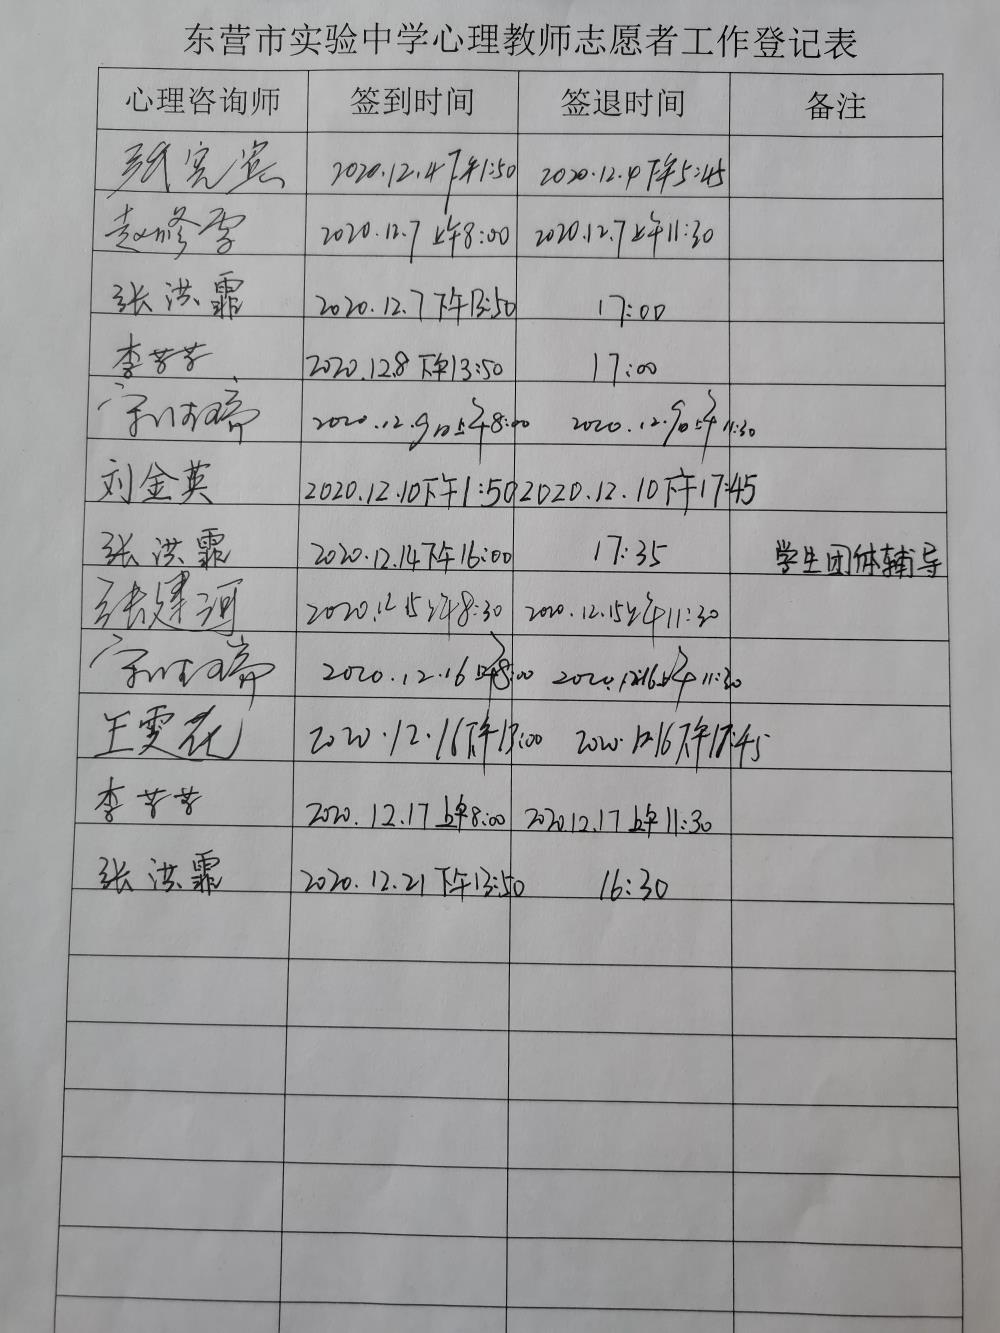 东营市实验中学心理教师志愿者工作登记表
心理咨询师 签到时间 签退时间 备注
2020.12.4下午1:50 2020.12.4下午5:45
赵修雪 2020.12.7上午8:00 2020.12.7上午11:30
张洪霏 2020.12.7下午13:50 17:00
李芳芳 2020.12.8下午13:50 17:00
2020.12.9日上午8:00 2020.12.9日上午11:30
刘金英 2020.12.10下午1:50 2020.12.10下午17:45
张洪霏 2020.12.14下午16:00 17:35 学生团体辅导
张建河 2020.12.15上午8:30 2020.12.15上午11:30
2020.12.16上午8:00 2020.12.16上午11:30
王雯花 2020.12.16下午13:00 2020.12.16下午17:45
李芳芳 2020.12.17上午8:00 2020.12.17上午11:30
张洪霏 2020.12.21下午13:50 16:30